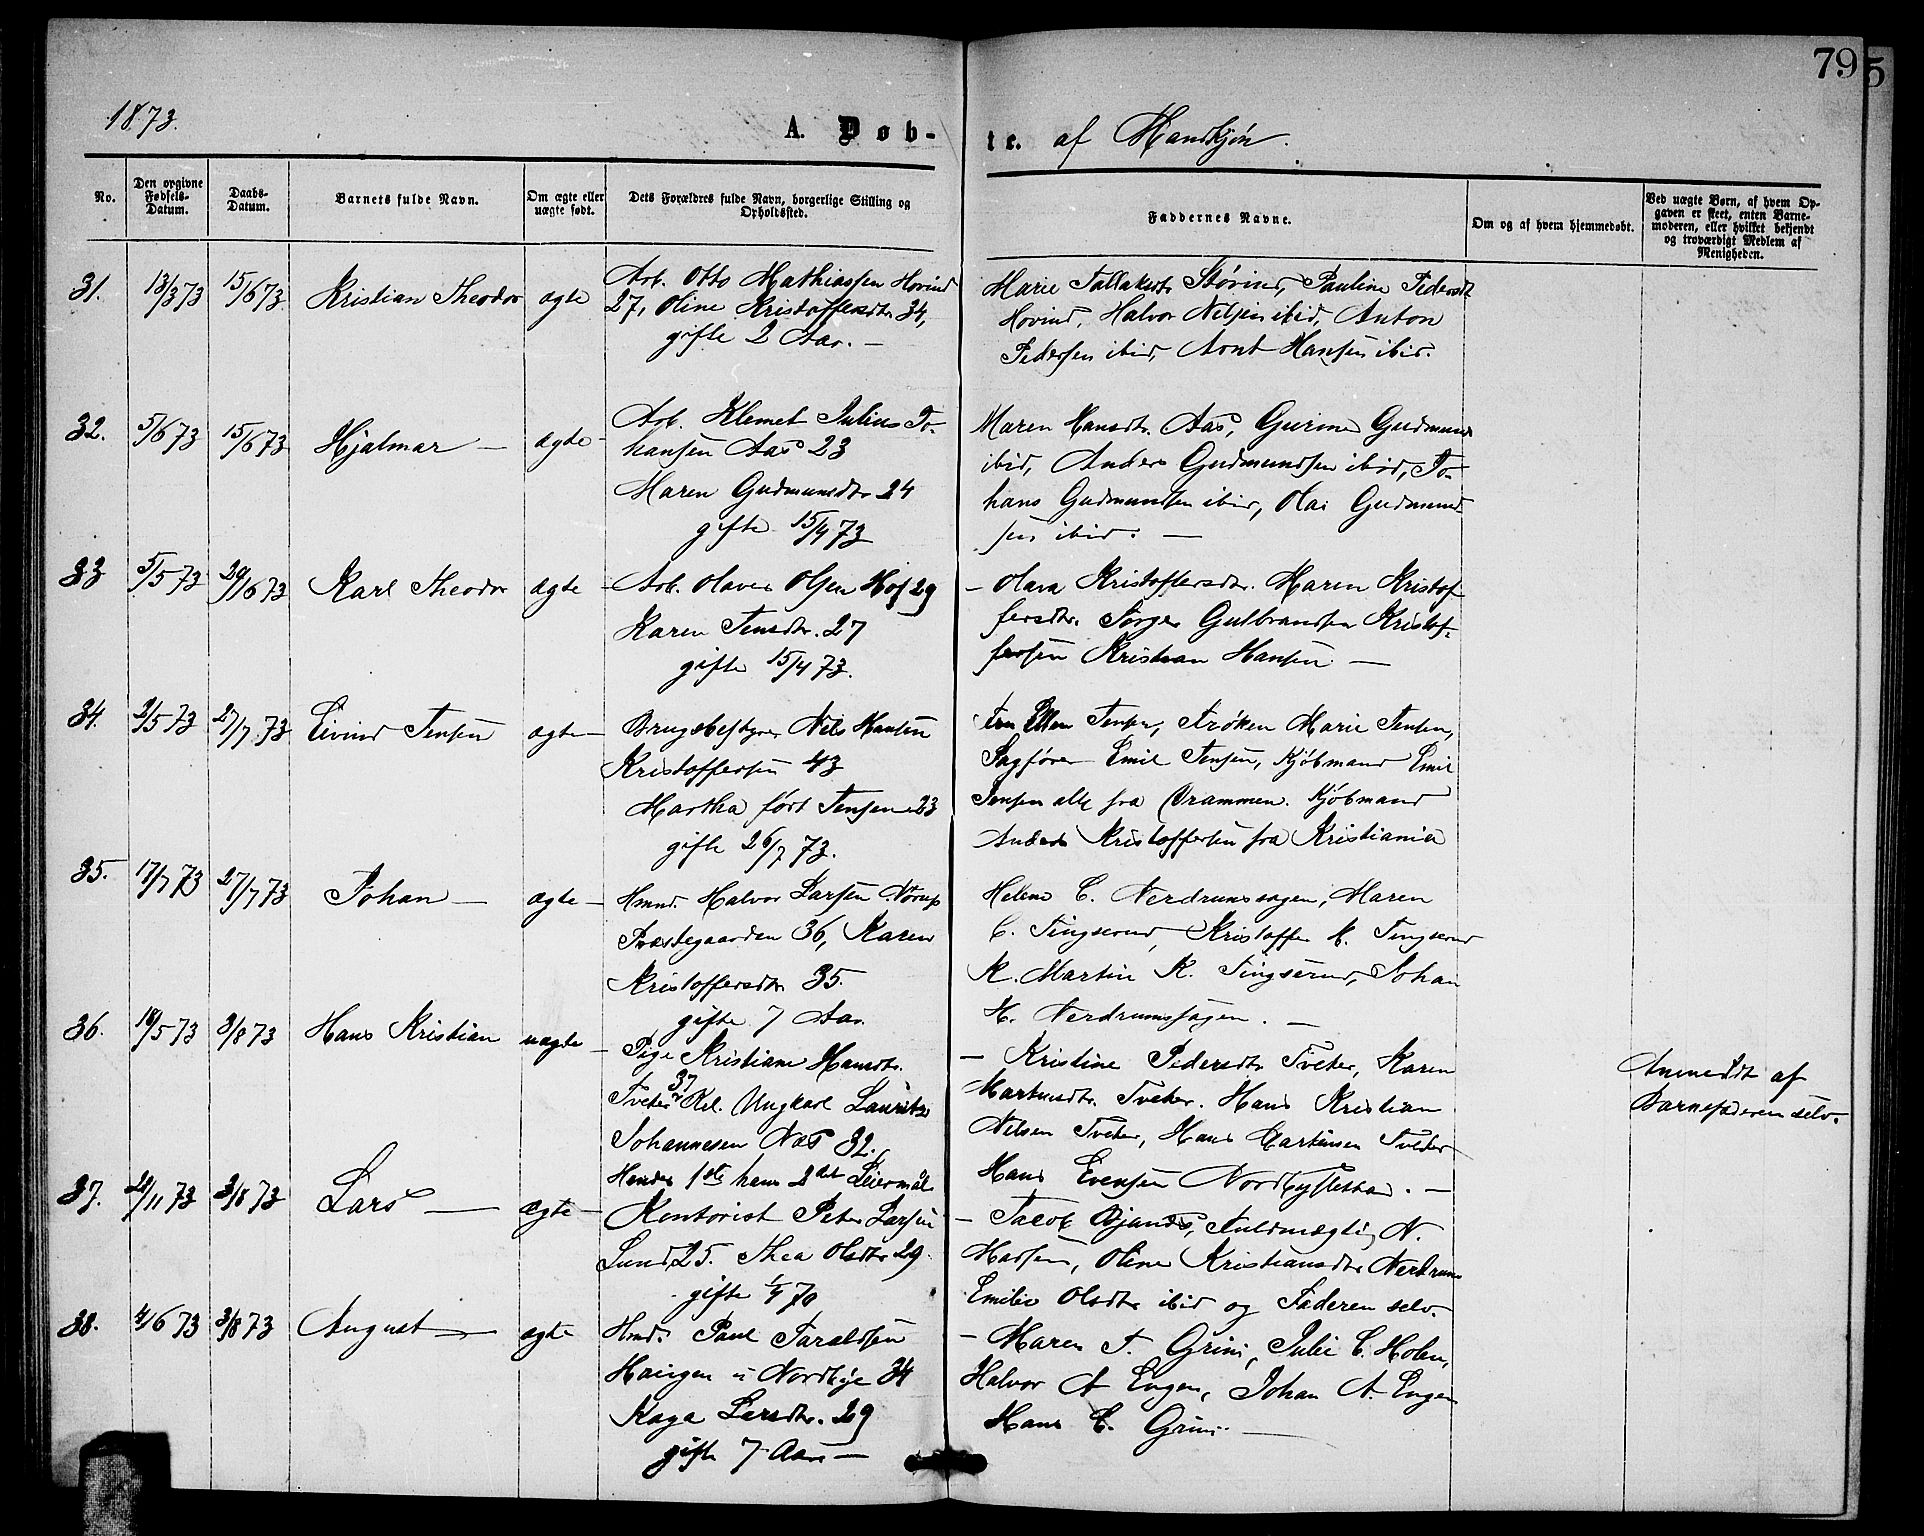 79
5
1873.
A. Døb-
te. af Mandkjøn.
No.
Den opgivne Fødsels-Datum.
Daabs-Datum.
Barnets fulde Navn.
Om ægte eller uægte født.
Dets Forældres fulde Navn, borgerlige Stilling og Opholdssted.
Faddernes Navne.
Om og af hvem hjemmedøbt.
Ved uægte Børn, af hvem Op-
gaven er skeet, enten Barne-
moderen, eller hvilket bekjendt
og troværdigt Medlem af
Menigheden.
31. 13/3 73 15/6 73. Kristian Theodor ægte
Arb. Otto Mathiassen Hovind
27, Oline Kristoffersdtr 34,
gifte 2 Aar. —
Marie Tallaksdtr Støvind, Pauline Pedersdt
Hovind, Halvor Nilsen ibid, Anton
Pedersen ibid, Arnt Hansen ibid.
32. 5/6 73 15/6 73 Hjalmar — ægte
Arb. Klemet Julius Jo-
hansen Aas 23
Maren Gudmunsdtr 24
gifte 15/4 73
Maren Hansdtr. Aas, Gurine Gudmunds
ibid, Anders Gudmundsen ibid, Jo-
hans Gudmundsen ibid, Olai Gudmund-
sen ibid. —
33 5/5 73 29/6 73 Karl Theodor ægte
Arb. Olaves Olsen Hof 29
Karen Jensdtr. 27
gifte 15/4 73.
— Olava Kristoffersdtr. Maren Kristof-
fersdtr. Jørgen Gulbrandsen Kristof-
fersen Kristian Hansen —
34. 2/5 73 27/7 73 Eivind Jensen ægte
Brugsbestyrer Nils Hansen
Kristoffersen 43
Martha født Jensen 23
gifte 26/7 73.
Fru Ellen Jensen, Frøken Marie Jensen,
Sagfører Emil Jensen, Kjøbmand Emil
Jensen alle fra Drammen. Kjøbmand
Anders Kristoffersen fra Kristiania
35. 17/7 73 27/7 73 Johan — ægte
Hmnd. Halvor Larsen Nørup
Præstegaarden 36, Karen
Kristoffersdtr 35.
gifte 7 Aar.
Helene C. Nerdrumsagen, Maren
C. Tingserud, Kristoffer K. Tingserud
K. Martin K. Tingserud, Johan
H. Nerdrumssagen. —
36. 18/5 73 3/8 73 Hans Kristian uægte
Pige Kristiane Hansdtr.
Tveter 37 Rel. Ungkarl Laurits
Johannesen Næs 32.
Hendes 1ste hans 2det Leiermål
— Kristine Pedersdtr Tveter, Karen
Martinsdtr. Tveter. Hans Kristian
Nilsen Tveter, Hans Martinsen Tveter
Hans Evensen Nordbyflettad. —
Anmeldt af
Barnefaderen selv.
37. 3/8 73 Lars — ægte
Kontorist Peter Larsen
Lund 25. Thea Olsdtr 29.
gifte 70
— Jacob Bjanæs, Fuldmægtig N.
Madsen, Oline Kristiansdtr Nerdrum
Emilie Olsdtr ibid og Faderen selv.
38. 4/6 73 3/8 73 August — ægte
Hmd. Paul Taraldsen
Haugen u Nordbye 34
Kaja Larsdtr. 29
gifte 7 Aar —
— Maren T. Grini, Julie C. Holm,
Halvor A Engen, Johan A. Engen
Hans C. Grini. —